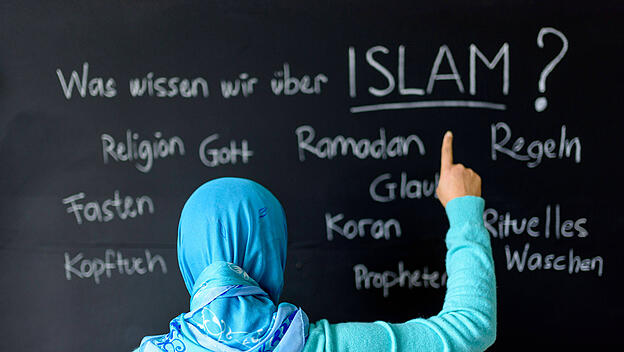 Was wissen wir über ISLAM?
Religion Gott Ramadan Regeln
Fasten Koran Rituelles Waschen
Kopftuch